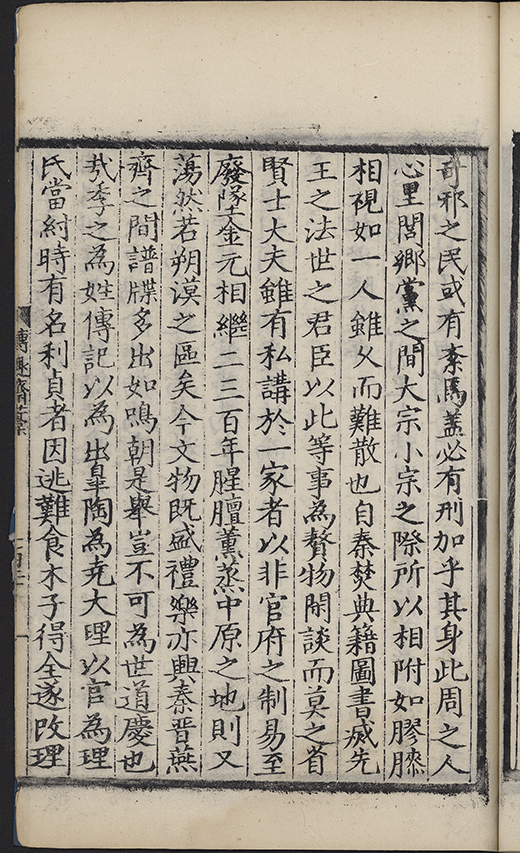 奇邪之民或有紊焉盖必有刑加乎其身此周之人
心里閭鄉黨之間大宗小宗之際所以相附如膠膝
相視如一人雖乆而難散也自秦焚典籍圖書㓕先
王之法世之君臣以此等事為贅物閑談而莫之省
賢士大夫雖有私講於一家者以非官府之制易至
廢墜金元相継二三百年腥膻薰蒸中原之地則又
蕩然若朔漠之區矣今文物既盛禮樂亦興秦晋燕
齊之間譜牒多出如鳴朝是舉豈不可為世道慶也
㢤李之為姓傳記以為出臯陶為尭大理以官為理
氏當紂時有名利貞者因逃難食木子得全遂改理